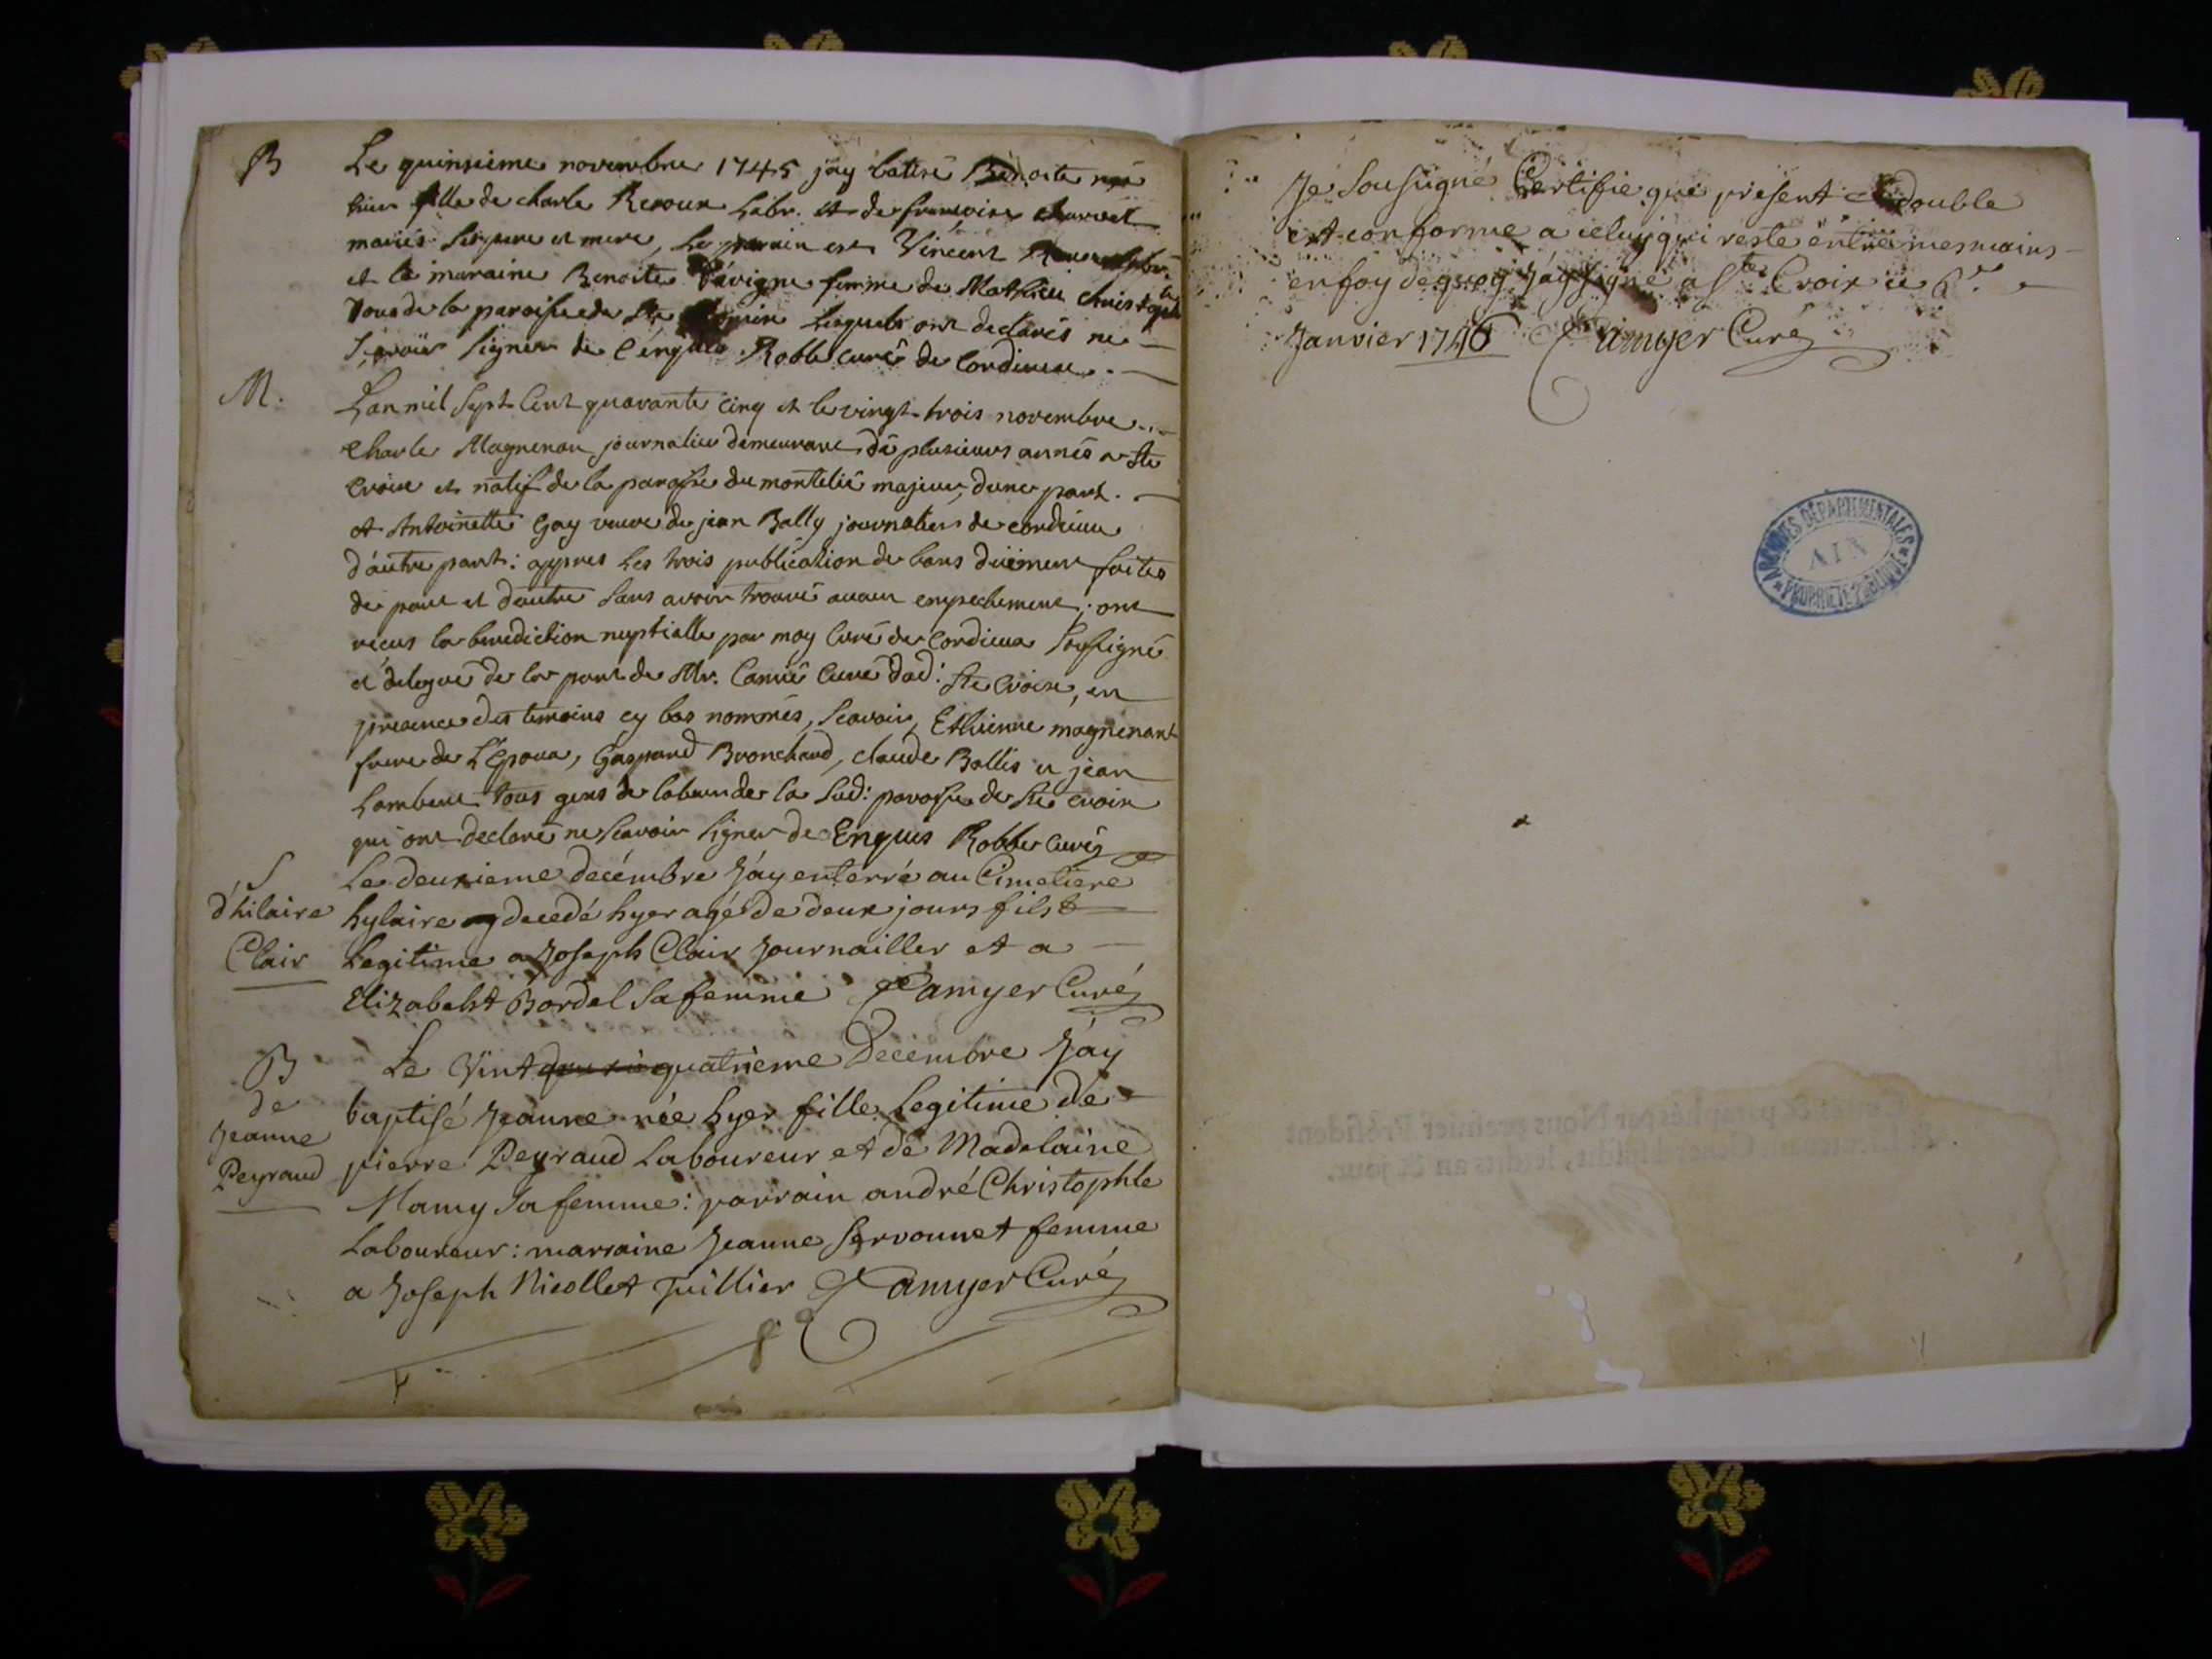 B
Le quinsieme novembre 1745 jay batisé Benoite née
hier fille de charle Revoux Labr. et de francoise charvet
mariés ses pere et mere, le parain est Vincent
et la maraine Benoite Pavigne femme de Mathieu christophle
tous de la paroisse de Ste lesquels ont declarés ne
scavoir signer de l'enquis Robbe curé de Cordieux.
M.
Lan mil sept cent quarante cinq et le vingt trois novembre
charle Magnenan journalier demeurant dé plusieurs annés a Ste
Croix et natif de la paroisse du montelié majeur, d'une part.
et Antoinette Gay veuve de jean Bally journaliers de cordieux
d'autre part: appres les trois publication de bans düement faites
de part et d'autre sans avoir trouvé aucun empechement; ont
recus la benediction nuptialle par moy Curé de Cordieux soussigné
et délégué de la part de Mr. Camié Curé dad: Ste Croix, en
presence des temoins cy bas nommés, scavoir, Ethienne magnenant
frere de L'Epoux, Gaspard Bronchard, claude Ballis et jean
Lambert tous gens de labeur de la sud: paroisse de Ste croix
qui ont declaré ne scavoir signer de Enquis Robbe Curé
S
d'hilaire
Clair
Le deuxieme decémbre J'ay enterré au Cimetiere
hylaire decedé hyer agé de deux jours fils
Legitime a Joseph Clair Journallier et a
Elizabeht Bordel sa femme Camyer Curé
B
de
Jeanne
Peyraud
Le Vint quatrieme Decembre J'ay
baptisé Jeanne née hyer fille legitime de
pierre Peyraud Laboureur et de Madelaine
Mamy sa femme: parrain andré Christophle
Laboureur: marraine Jeanne Servonnet femme
a Joseph Nicollet Tuillier Camyer Curé
Je Sousigné Certifie que présent double
est conforme a celuy qui reste entre mes mains
en foy de quoy J'ay signé a Ste Croix ce 6e
Janvier 1746 Camyer Curé
ARCHIVES DÉPARTEMENTALES
AIN
PROPRIÉTÉ PUBLIQUE